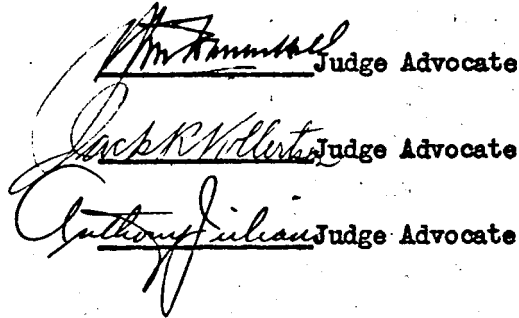 Judge Advocate
Jack K Vollertsen Judge Advocate
Anthony Julian Judge Advocate